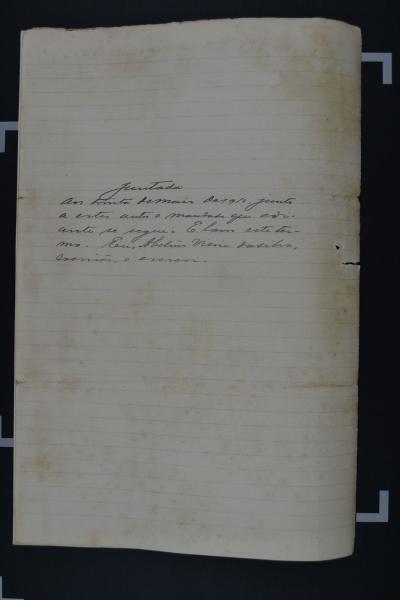 Juntada
Aos trinta de maio de 1912, junto
a estes autos o mandado que adi-
ante se segue. E lavro este ter-
mo. Eu, Vieira da Silva,
escrivão, o escrevi.